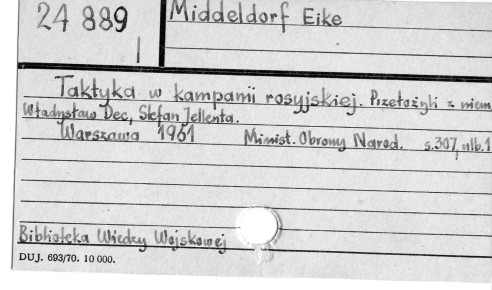 24 889
I
Middeldorf Eike
Taktyka w kampanii rosyjskiej. Przełożyli z niem.
Władysław Dec, Stefan Jellenta.
Warszawa 1961 Minist. Obrony Narod. s.307, nlb.1
Biblioteka Wiedzy Wojskowej
DUJ. 693/70. 10 000.